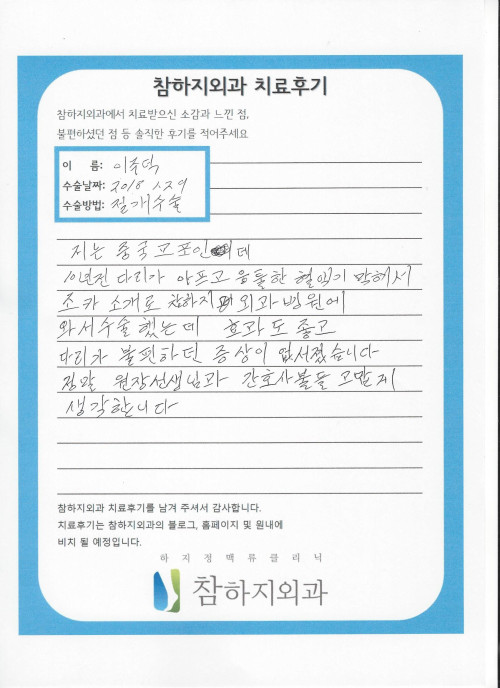 참하지외과 치료후기
참하지외과에서 치료받으신 소감과 느낀 점,
불편하셨던 점 등 솔직한 후기를 적어주세요
이 름:
수술날짜: 2018 1.29
수술방법: 절개수술
저는 중국교포인데
10년전 다리가 아프고 움틀한 혈액이 막혀서
조카 소개로 참하지 외과병원에
와서수술 했는데 효과도 좋고
다리가 불편하던 증상이 없서졌습니다
정말 원장선생님과 간호사분들 고맙게
생각합니다
참하지외과 치료후기를 남겨 주셔서 감사합니다.
치료후기는 참하지외과의 블로그, 홈페이지 및 원내에
비치 될 예정입니다.
하지정맥류클리닉
참하지외과